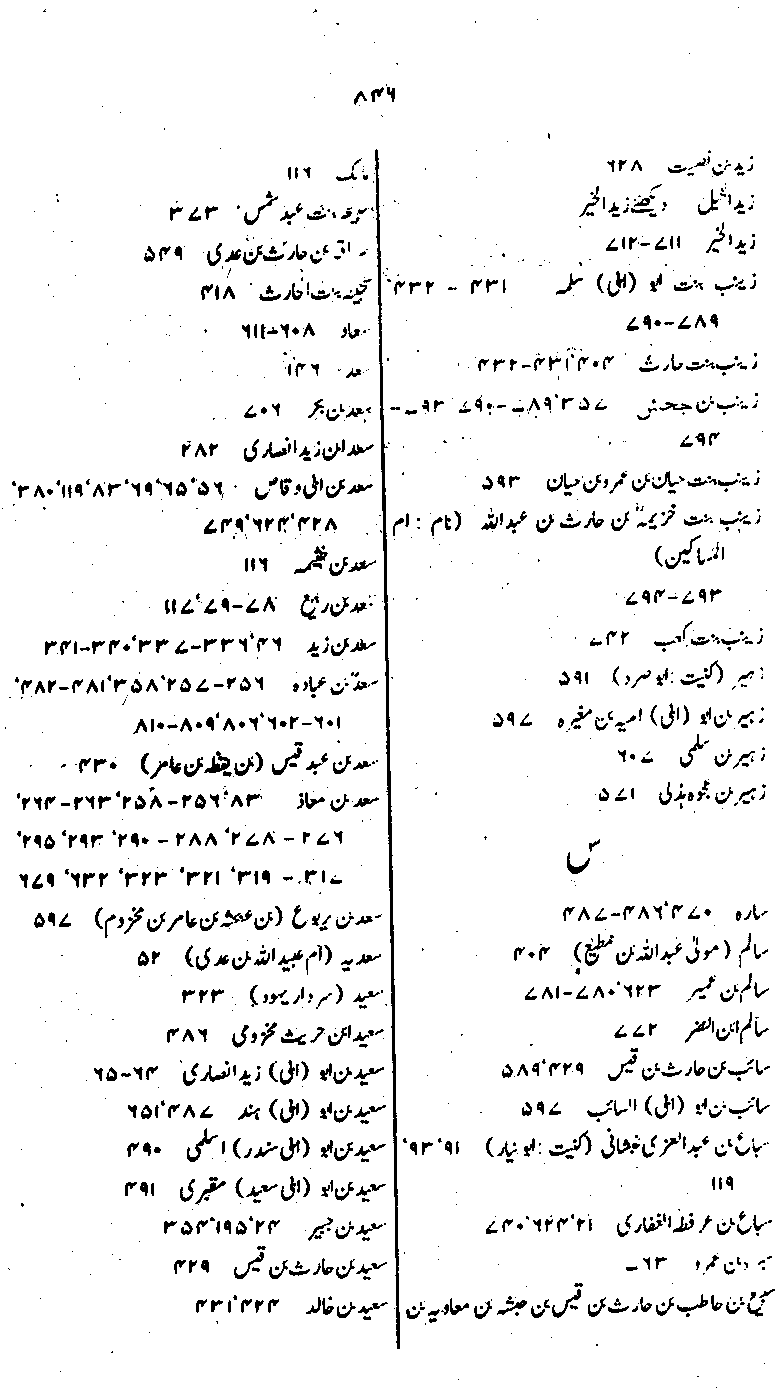 ۸۴۶
زید بن نصیت ۶۲۸
زید الخیل دیکھئے زید الخیر
زید الخیر ۷۱۱-۷۱۲
زینب بنت ابو (ابی) سلمہ ۴۳۱ - ۴۳۲'
۷۸۹-۷۹۰
زینب بنت حارث ۴۰۴'۴۳۱-۴۳۲
زینب بن جحش
۷۹۴
زینب بنت حیان بن عمرو بن حیان ۵۹۳
زینب بنت خزیمہ بن حارث بن عبداللہ (نام : ام
المساکین)
۷۹۳-۷۹۴
زینب بنت کعب ۷۴۲
زہیر (کنیت : ابو صرد) ۵۹۱
زہیر بن ابو (ابی) امیہ بن مغیرہ ۵۹۷
زہیر بن سلمی ۶۰۷
زہیر بن عجوہ ہذلی ۵۷۱
س
سارہ ۴۷۰'۴۸۶-۴۸۷
سالم (مولیٰ عبداللہ بن مطیع) ۴۰۴
سالم بن عمیر ۶۲۳'۷۸۰-۷۸۱
سالم ابن النضر ۷۷۲
سائب بن حارث بن قیس ۴۲۹'۵۸۹
سائب بن ابو (ابی) السائب ۵۹۷
سباع بن عبدالعزی غبشانی (کنیت : ابو نیار) ۹۱'۹۳'
۱۱۹
سباع بن عرفطہ الغفاری ۲۱'۶۲۴'۷۴۰
بن عمرو ۶۳
بن حاطب بن حارث بن قیس بن حبشہ بن معاویہ بن
مالک ۱۱۶
بنت عبد شمس ۳۷۳
بن حارث بن عدی ۵۴۹
بنت الحارث ۴۱۸
معاذ ۶۰۸-۶۱۱
سعد ۱۴۶
سعد بن بحر ۷۰۶
سعد ابن زید انصاری ۲۸۲
سعد بن ابی وقاص ۵۶'۶۵'۶۹'۸۳'۱۱۹'۳۸۰'
۴۲۸'۶۲۴'۷۴۹
سعد بن خثیمہ ۱۱۶
سعد بن ربیع ۷۸-۷۹'۱۱۷
سعد بن زید ۴۶'۳۳۶-۳۳۷'۳۴۰-۳۴۱
سعد بن عبادہ ۲۵۶-۲۵۷'۳۵۸'۴۸۱-۴۸۲'
۶۰۱-۶۰۲'۸۰۶'۸۰۹-۸۱۰
سعد بن عبد قیس (بن یقظہ بن عامر) ۴۳۰
سعد بن معاذ ۸۳'۲۵۶-۲۵۸'۲۶۳-۲۶۴'
۲۷۶ - ۲۷۸' ۲۸۸ - ۲۹۰' ۲۹۳' ۲۹۵'
۳۱۷ - ۳۱۹' ۳۲۱' ۳۲۳' ۶۳۲' ۶۷۹
سعد بن یربوع (بن عنکشہ بن عامر بن مخزوم) ۵۹۷
سعدیہ (ام عبید اللہ بن عدی) ۵۲
سعید (سردار یہود) ۳۲۳
سعید ابن حریث مخزومی ۴۸۶
سعید بن ابو (ابی) زید انصاری ۶۴-۶۵
سعید بن ابو (ابی) ہند ۴۸۷'۶۵۱
سعید بن ابو (ابی مندر) اسلمی ۴۹۰
سعید بن ابو (ابی سعید) مقبری ۴۹۱
سعید بن جبیر ۲۴'۱۹۵'۳۵۴
سعید بن حارث بن قیس ۴۲۹
سعید بن خالد ۴۲۴'۴۳۱